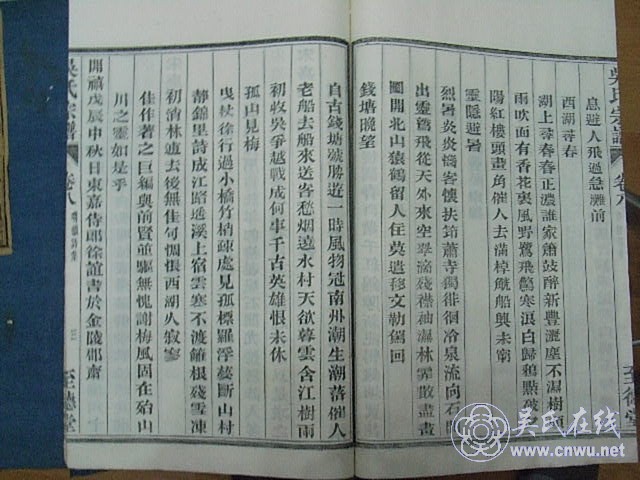 吳氏宗譜
卷八
至德堂
息避人飛過急灘前
西湖尋春
湖上尋春春正濃誰家簫鼓醉新豐灑塵不濕樹頭
雨吹面有香花裏風野鷺飛驚寒浪白歸鴉點破夕
陽紅樓頭畫角催人去滿棹觥船興未窮
靈隱避暑
烈暑炎炎惱客懷扶筇蕭寺獨徘徊冷泉流向石
出靈鷲飛從天外來空翠滿殘襟袖濕林霏散盡畫
圖開北山猿鶴留人住莫遣移文勒駕回
錢塘晚望
自古錢塘號勝遊一時風物冠南州潮生潮落催人
老船去船來送客愁烟遶水村天欲暮雲含江樹雨
初收吳爭越戰成何事千古英雄恨未休
孤山見梅
曳杖徐行過小橋竹梢疎處見孤標羅浮夢斷山村
靜錦里詩成江路遙溪上宿雲寒不渡籬根殘雪凍
初消林逋去後無佳句惆悵西湖久寂寥
佳作著之巨編與前賢並驅無愧謝梅風固在殆山
川之靈如是乎
開禧戊辰中秋日東嘉侍郎徐誼書於金陵邸齋
吳氏宗譜
卷八
至德堂
吴氏在线
www.cnwu.net